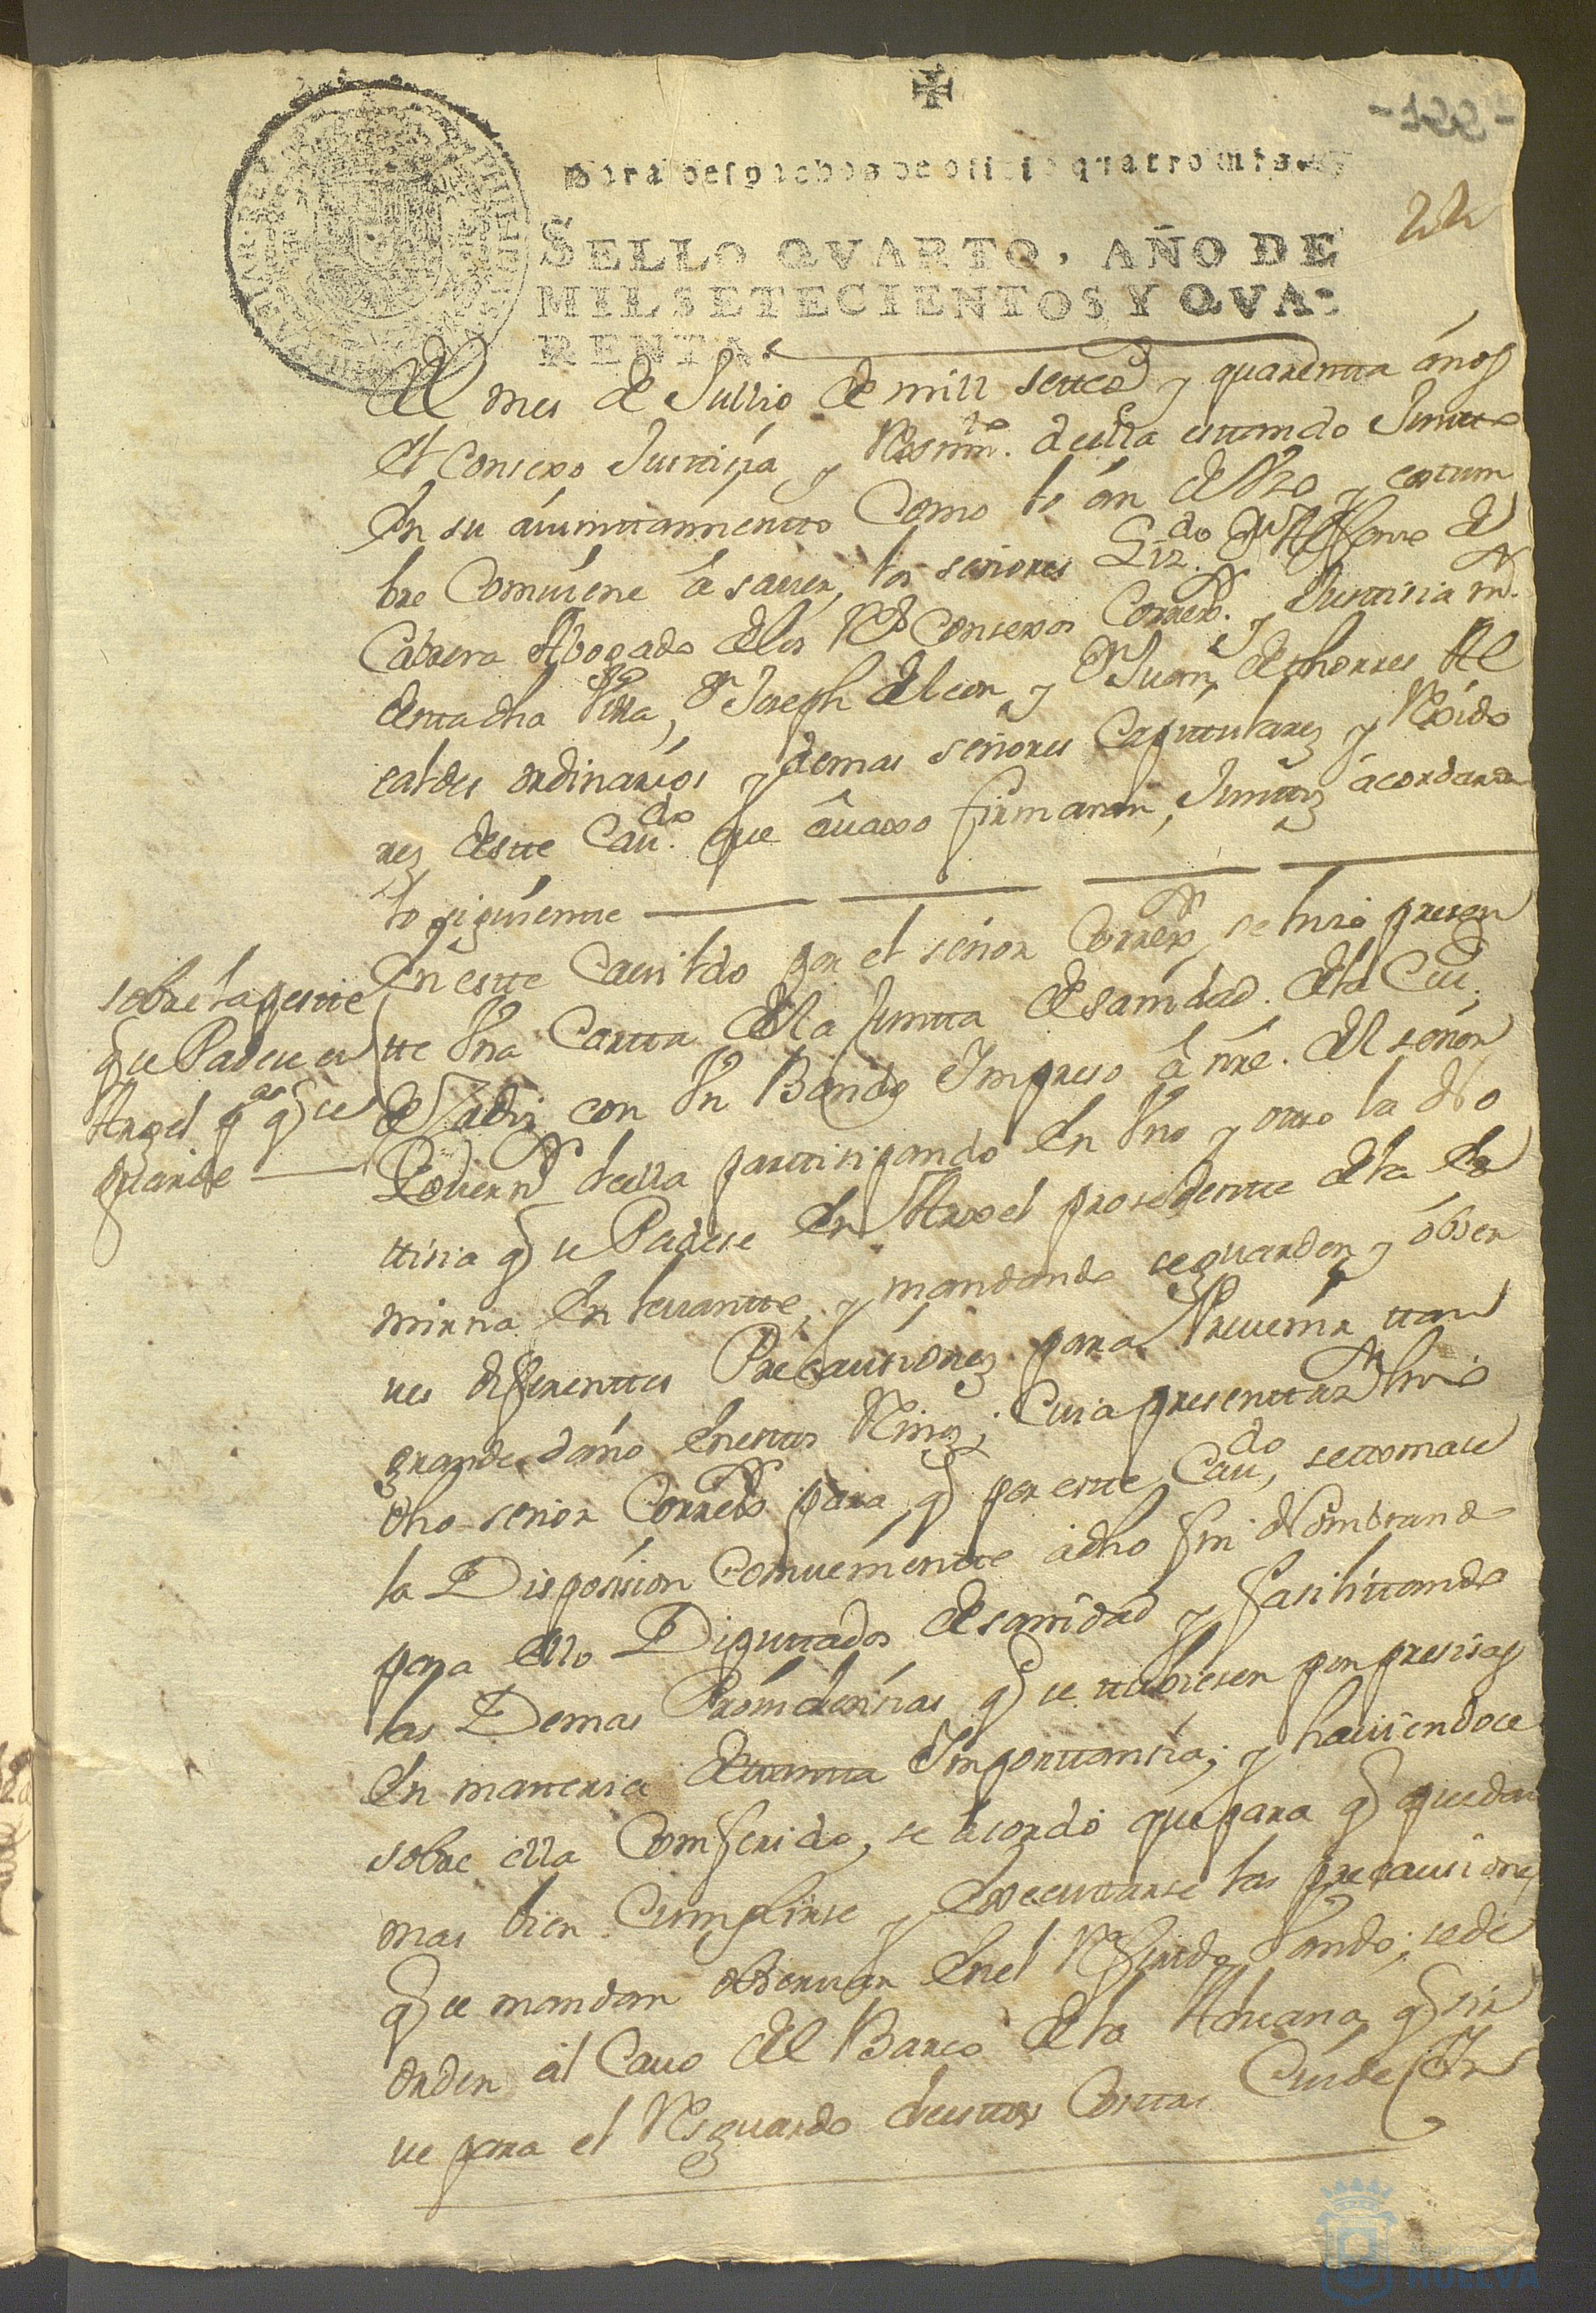 ✠
-122-
Para despachos de oficio quatro mrs.
22
SELLO QVARTO, AÑO DE
MIL SETECIENTOS Y QVA-
RENTA.
del mes de Jullio de mill settecs y quarentta años
el Consexo Justticia y Reximto. de ella estando Juntto
en su aiunttamientto Como lo an de Uzo y costum
bre Combiene a saver, los señores Lizdo. Dn
Cabrera Abogado de los Rs Consexos Correxr. y Justtisia mr.
de esta dha Villa, Dn Joseph de leon, y Dn Juan de thorres Al
caldes ordinarios y demas señores Capittulares y Rexido
res de este Cavdo. que avaxo firmaran, Junttos acordaron
lo siguientte
Sobre la pestte
que Padece en
Argel pa que se
guarde
En estte Cavildo por el señor Correxr se hizo presen
tte Una Cartta de la Juntta de sanidad de la Ciud.
de Cadiz con Un Bando Impreso a nre. del señor
Governr de ella parttisipando en Uno y otro la No
ttisia que se Padese en Arxel prosedentte de la Es
mirna en levantte, y mandando se guarden y obser
ven diferenttes Precausiones para Prevenir ttan
grande daño en estos Reinos; Cuia presenttazn hizo
dho señor Correxr para q por estte Cavdo, se tomase
la Disposision Comvenientte a dho fin Nombrando
para ello Diputtados de sanidad y fasilittando
las Demas Providensias que se ttubiesen por presisas
en matteria de ttantta Importtansia; y haviendose
sobre ella Comferido, se acordo que para q puedan
mas bien Cumplirse y executtarse las precausiones
que se mandan obserbar en el Referido bando; se de
orden al Cavo del Barco de la Aduana q sir
ve para el Resguardo de esttas Costtas Cuide
Ayuntamiento de
HUELVA